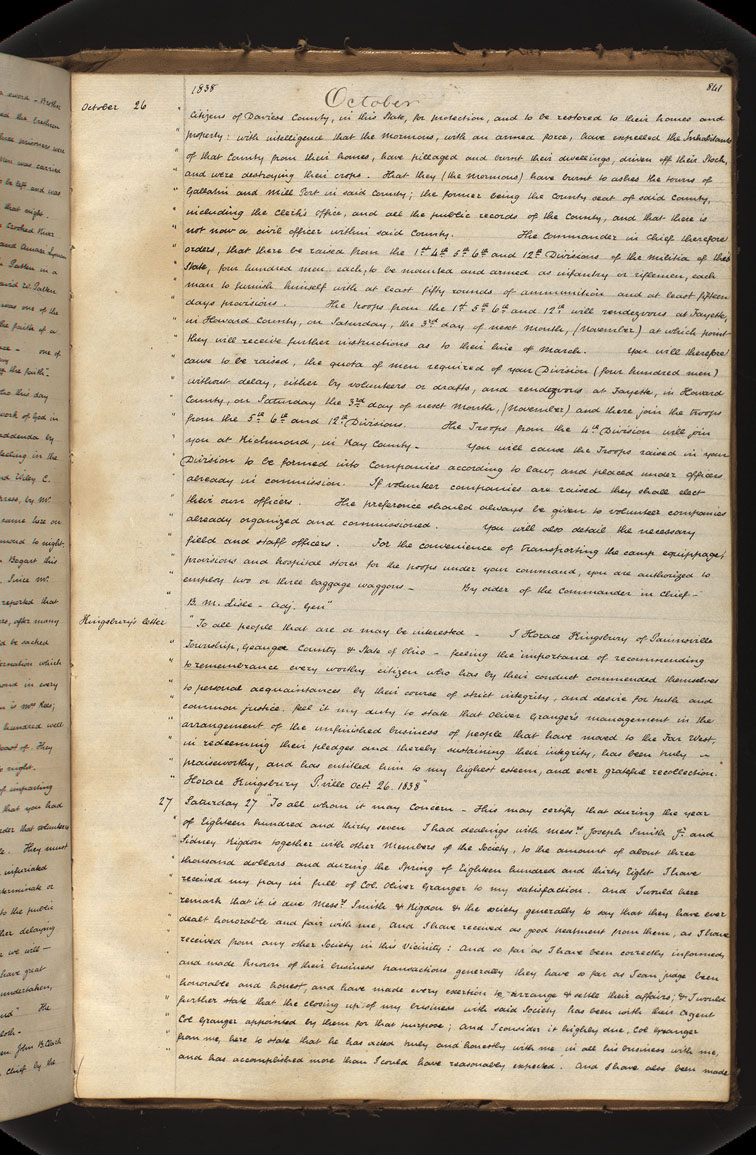 1838 October 841
October 26 citizens of Daviess County, in this State, for protection, and to be restored to their homes and
property: with intelligence that the Mormons, with an armed force, have expelled the Inhabitants
of that County from their homes, have pillaged and burnt their dwellings, driven off their Stock,
and were destroying their crops. That they (the Mormons) have burnt to ashes the towns of
Gallatin and Mill Port in said County; the former being the County seat of said County,
including the Clerk's office, and all the public records of the County, and that there is
not now a civil officer within said County. The Commander in Chief therefore
orders, that there be raised from the 1st 4th 5th 6th and 12th Divisions of the militia of this
State, four hundred men each, to be mounted and armed as infantry or riflemen, each
man to furnish himself with at least fifty rounds of ammunition and at least fifteen
days provisions. The troops from the 1st 5th 6th and 12th will rendezvous at Fayette,
in Howard County, on Saturday, the 3rd day of next Month, (November) at which point
they will receive further instructions as to their line of March. You will therefore
cause to be raised, the quota of men required of your Division (four hundred men)
without delay, either by volunteers or drafts, and rendezvous at Fayette, in Howard
County, on Saturday the 3rd day of next Month, (November) and there join the troops
from the 5th 6th and 12th Divisions. The Troops from the 4th Division will join
you at Richmond, in Ray County - You will cause the Troops raised in your
Division to be formed into Companies according to law, and placed under officers
already in commission. If volunteer companies are raised they shall elect
their own officers. The preference should always be given to volunteer companies
already organized and commissioned. You will also detail the necessary
field and staff officers. For the convenience of transporting the camp equippage,
provisions and hospital stores for the troops under your command, you are authorized to
employ two or three baggage waggons - By order of the Commander in chief -
B. M. Lisle - Adj. Gen"
Kingsbury's letter "To all people that are or may be interested - I Horace Kingsbury of Painesville
Township, Geauga County & State of Ohio - feeling the importance of recommending
to remembrance every worthy citizen who has by their conduct commended themselves
to personal acquaintances by their course of strict integrity, and desire for truth and
common justice, feel it my duty to state that Oliver Granger's management in the
arrangement of the unfinished business of people that have moved to the Far West,
in redeeming their pledges and thereby sustaining their integrity, has been truly -
praiseworthy, and has entitled him to my highest esteem, and ever grateful recollection.
Horace Kingsbury P.ville Oct. 26. 1838"
27 Saturday 27 "To all whom it may Concern - This may certify, that during the year
of Eighteen hundred and thirty seven I had dealings with Messrs Joseph Smith Jr. and
Sidney Rigdon together with other Members of the Society, to the amount of about three
thousand dollars and during the Spring of Eighteen hundred and thirty Eight I have
received my pay in full of Col. Oliver Granger to my satisfaction. And I would here
remark that it is due Messrs Smith & Rigdon & the society generally to say that they have ever
dealt honorable and fair with me, And I have received as good treatment from them, as I have
received from any other Society in this Vicinity: And so far as I have been correctly informed,
and made known of their business transactions generally they have so far as I can judge been
honorable and honest, and have made every exertion to arrange & settle their affairs; & I would
further state that the closing up of my business with said Society has been with their Agent
Col. Granger appointed by them for that purpose; And I consider it highly due, Col. Granger
from me, here to state that he has acted truly and honestly with me in all his business with me,
and has accomplished more than I could have reasonably expected. And I have also been made